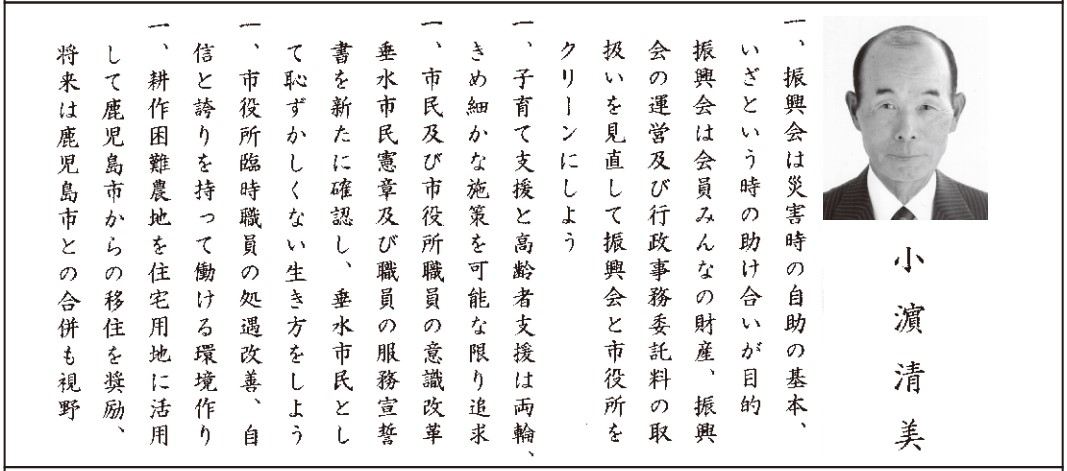 小濵清美
一、振興会は災害時の自助の基本、
いざという時の助け合いが目的
振興会は会員みんなの財産、振興
会の運営及び行政事務委託料の取
扱いを見直して振興会と市役所を
クリーンにしよう
一、子育て支援と高齢者支援は両輪、
きめ細かな施策を可能な限り追求
一、市民及び市役所職員の意識改革
垂水市民憲章及び職員の服務宣誓
書を新たに確認し、垂水市民とし
て恥ずかしくない生き方をしよう
一、市役所臨時職員の処遇改善、自
信と誇りを持って働ける環境作り
一、耕作困難農地を住宅用地に活用
して鹿児島市からの移住を奨励、
将来は鹿児島市との合併も視野